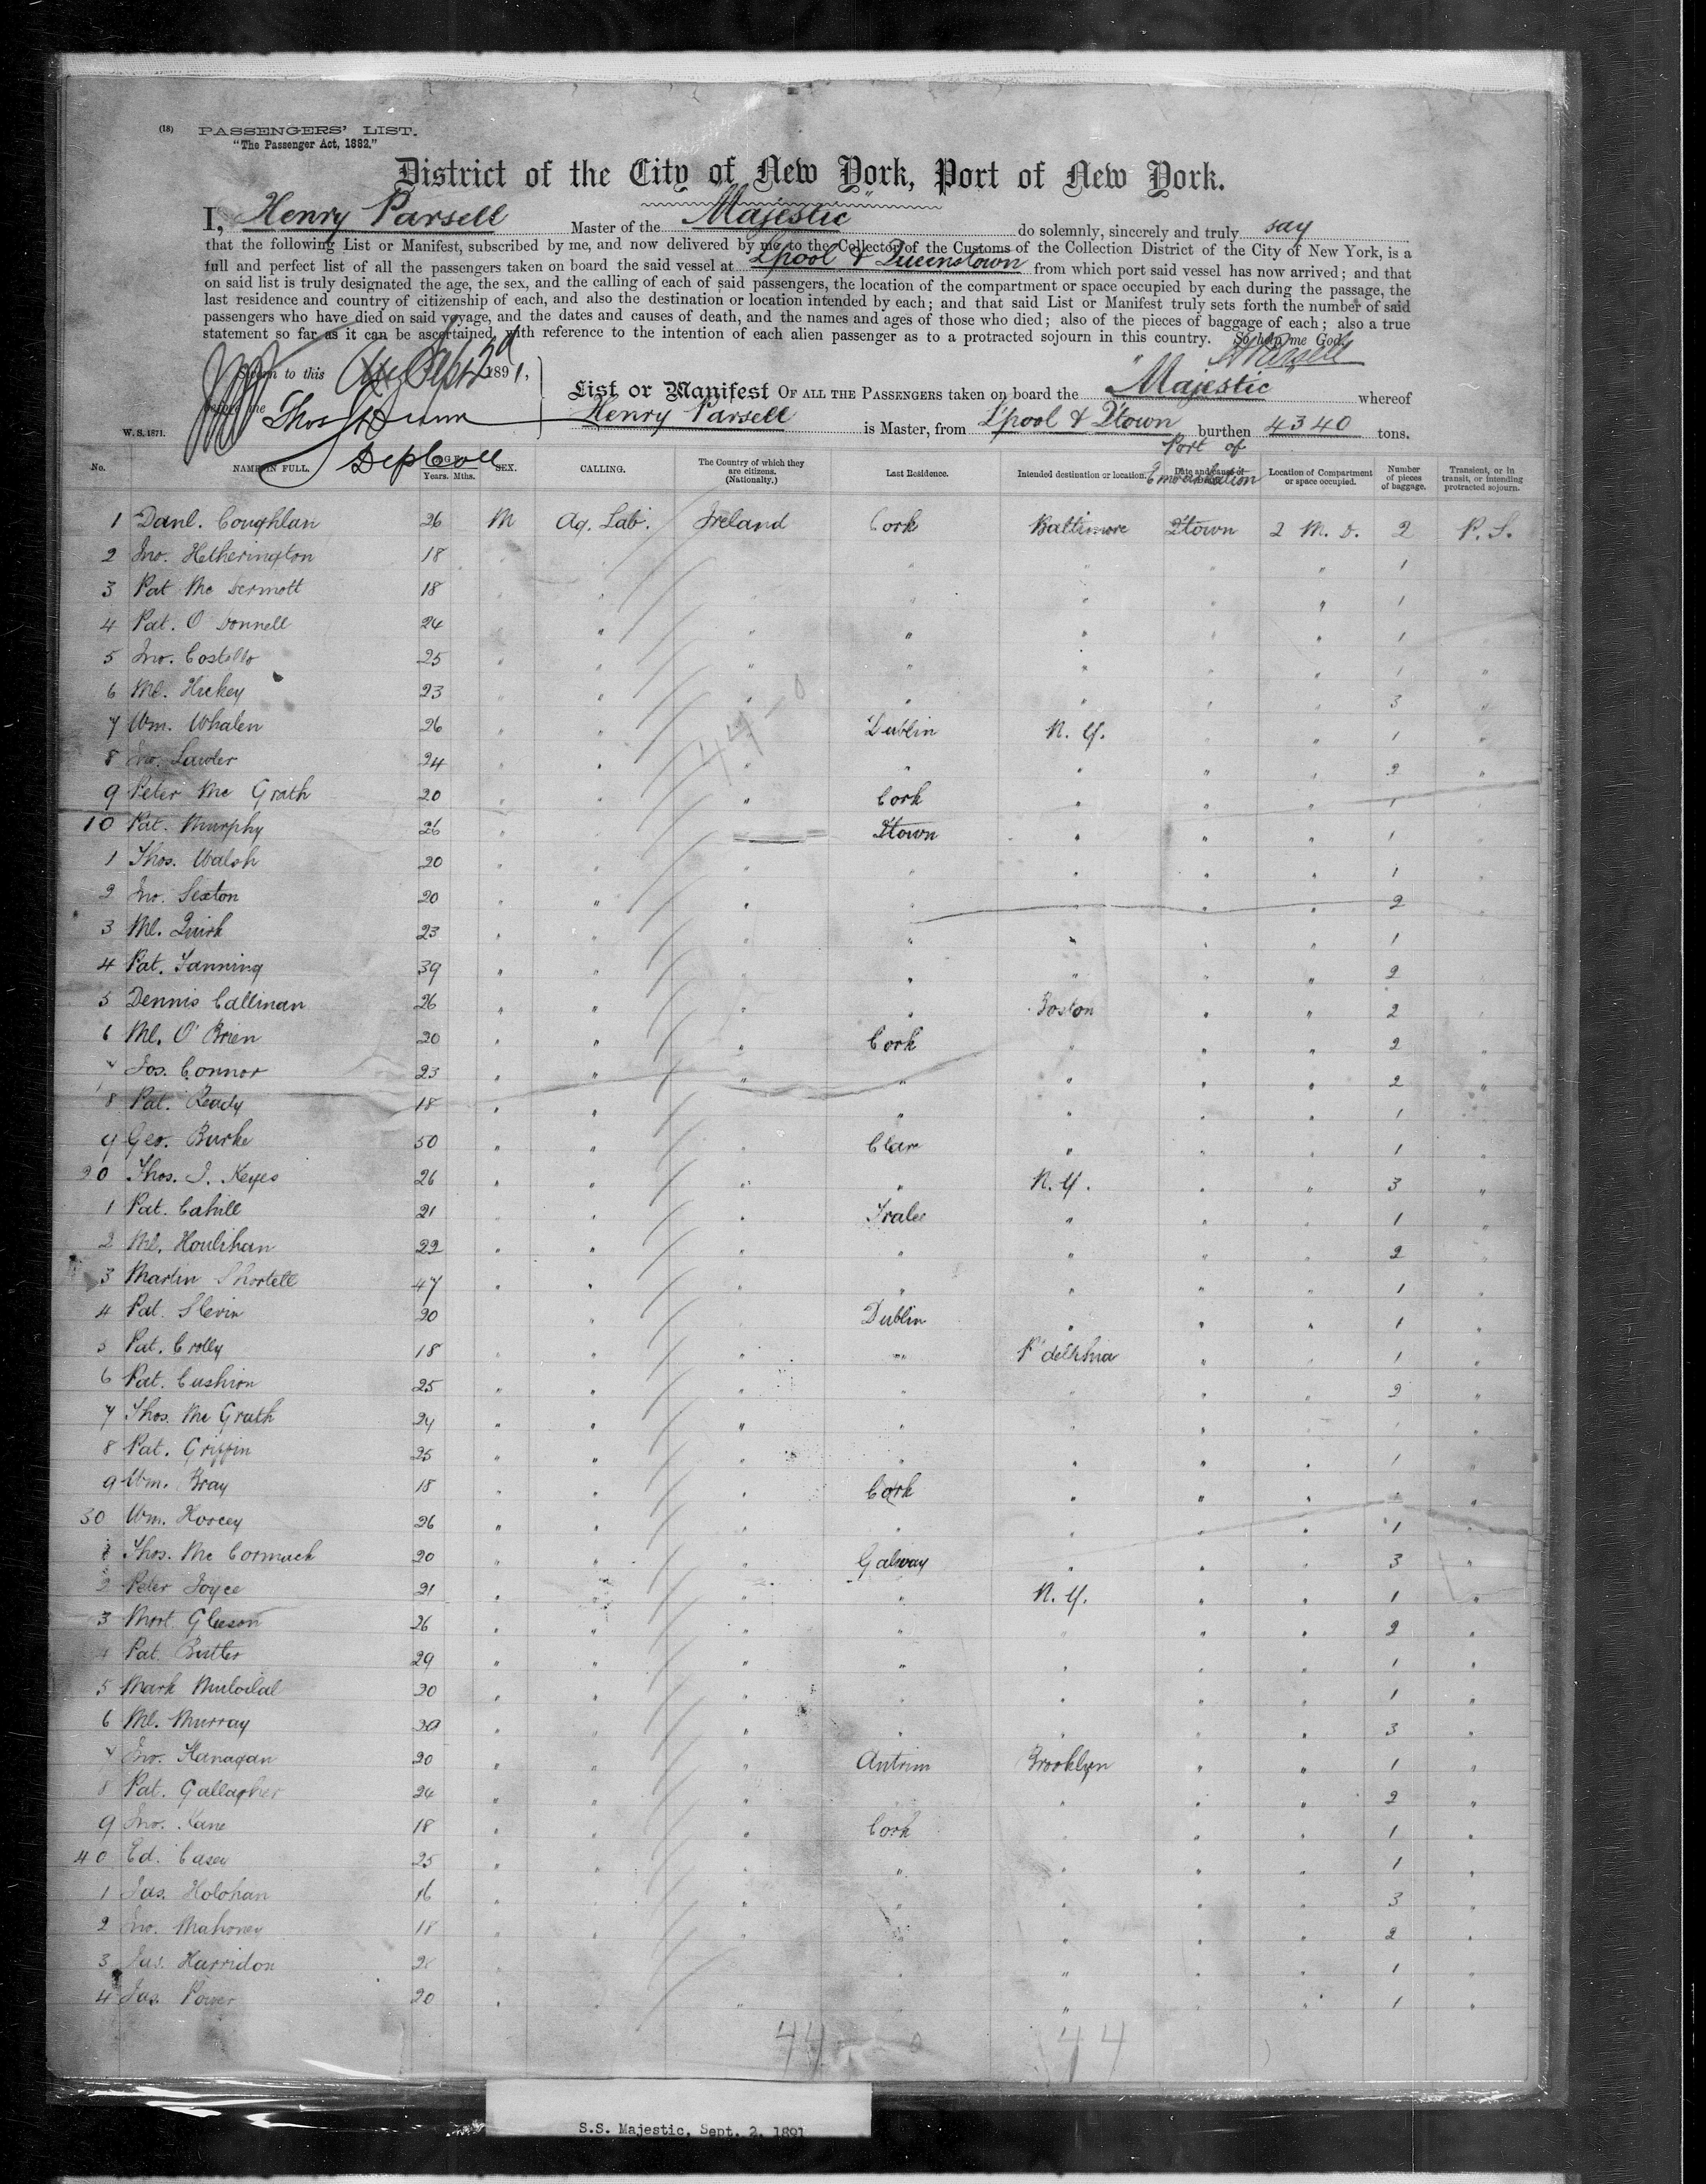 (18) PASSENGERS' LIST.
"The Passenger Act, 1882."
District of the City of New York, Port of New York.
I, Henry Parsell Master of the Majestic do solemnly, sincerely and truly say
that the following List or Manifest, subscribed by me, and now delivered by me to the Collector of the Customs of the Collection District of the City of New York, is a
full and perfect list of all the passengers taken on board the said vessel at L'pool & Queenstown from which port said vessel has now arrived; and that
on said list is truly designated the age, the sex, and the calling of each of said passengers, the location of the compartment or space occupied by each during the passage, the
last residence and country of citizenship of each, and also the destination or location intended by each; and that said List or Manifest truly sets forth the number of said
passengers who have died on said voyage, and the dates and causes of death, and the names and ages of those who died; also of the pieces of baggage of each; also a true
statement so far as it can be ascertained, with reference to the intention of each alien passenger as to a protracted sojourn in this country. So help me God.
H Parsell
Sworn to this Sept 2d 1891,
before me Thos Dunn
Dep Coll
List or Manifest OF ALL THE PASSENGERS taken on board the Majestic whereof
Henry Parsell is Master, from L'pool & Q'town burthen 4340 tons.
W. S. 1871.
Port of Embarkation
No. NAME IN FULL. AGE. Years. Mths. SEX. CALLING. The Country of which they are citizens. (Nationalty.) Last Residence. Intended destination or location. Date and cause of Location of Compartment or space occupied. Number of pieces of baggage. Transient, or in transit, or intending protracted sojourn.
1 Danl. Coughlan 26 M Ag. Lab. Ireland Cork Baltimore Q'town 2 M. D. 2 P. S.
2 Jno. Hetherington 18 " " " " " " " 1
3 Pat Mc Dermott 18 " " " " " " " 1
4 Pat. O'Donnell 24 " " " " " " " 1
5 Jno. Costello 25 " " " " " " " 1 "
6 Ml. Hickey 23 " " " " " " " 3 "
7 Wm. Whalen 26 " " " Dublin N. Y. " " 1 "
8 Jno. Lawler 24 " " " " " " " 2 "
9 Peter Mc Grath 20 " " " Cork " " " 1 "
10 Pat. Murphy 26 " " " Q'town " " " 1 "
1 Thos. Walsh 20 " " " " " " " 1 "
2 Jno. Sexton 20 " " " " " " " 2 "
3 Ml. Quirk 23 " " " " " " " 1 "
4 Pat. Fanning 39 " " " " " " " 2 "
5 Dennis Callinan 26 " " " " Boston " " 2 "
6 Ml. O'Brien 20 " " " Cork " " " 2 "
7 Jos. Connor 23 " " " " " " " 2 "
8 Pat. Ready 18 " " " " " " " 1 "
9 Geo. Burke 50 " " " Clare " " " 1 "
20 Thos. J. Keyes 26 " " " " N. Y. " " 3 "
1 Pat. Cahill 21 " " " Tralee " " " 1 "
2 Ml. Houlihan 22 " " " " " " " 2 "
3 Martin Shortell 47 " " " " " " " 1 "
4 Pat. Slevin 20 " " " Dublin " " " 1 "
5 Pat. Crolly 18 " " " " P'delphia " " 1 "
6 Pat. Cushion 25 " " " " " " " 2 "
7 Thos. Mc Grath 24 " " " " " " " 1 "
8 Pat. Griffin 25 " " " " " " " 1 "
9 Wm. Bray 18 " " " Cork " " " "
30 Wm. Horcey 26 " " " " " " " 1 "
1 Thos. Mc Cormack 20 " " " Galway " " " 3 "
2 Peter Joyce 21 " " " " N. Y. " " 1 "
3 Mort. Gleeson 26 " " " " " " " 2 "
4 Pat. Butler 29 " " " " " " " 1 "
5 Mark 20 " " " " " " " 1 "
6 Ml. Murray " " " " " " " 3 "
7 Jno. Flanagan 20 " " " Antrim Brooklyn " " 1 "
8 Pat. Gallagher 24 " " " " " " " 2 "
9 Jno. Kane 18 " " " Cork " " " 1 "
40 Ed. Casey 25 " " " " " " " 1 "
1 Jas. Holohan 16 " " " " " " " 3 "
2 Jno. Mahoney 18 " " " " " " " 2 "
3 Jas. Harridon " " " " " " " 1 "
4 Jas. Power 20 " " " " " " " 1 "
44 - 0
44 0 44
S.S. Majestic, Sept. 2, 1891